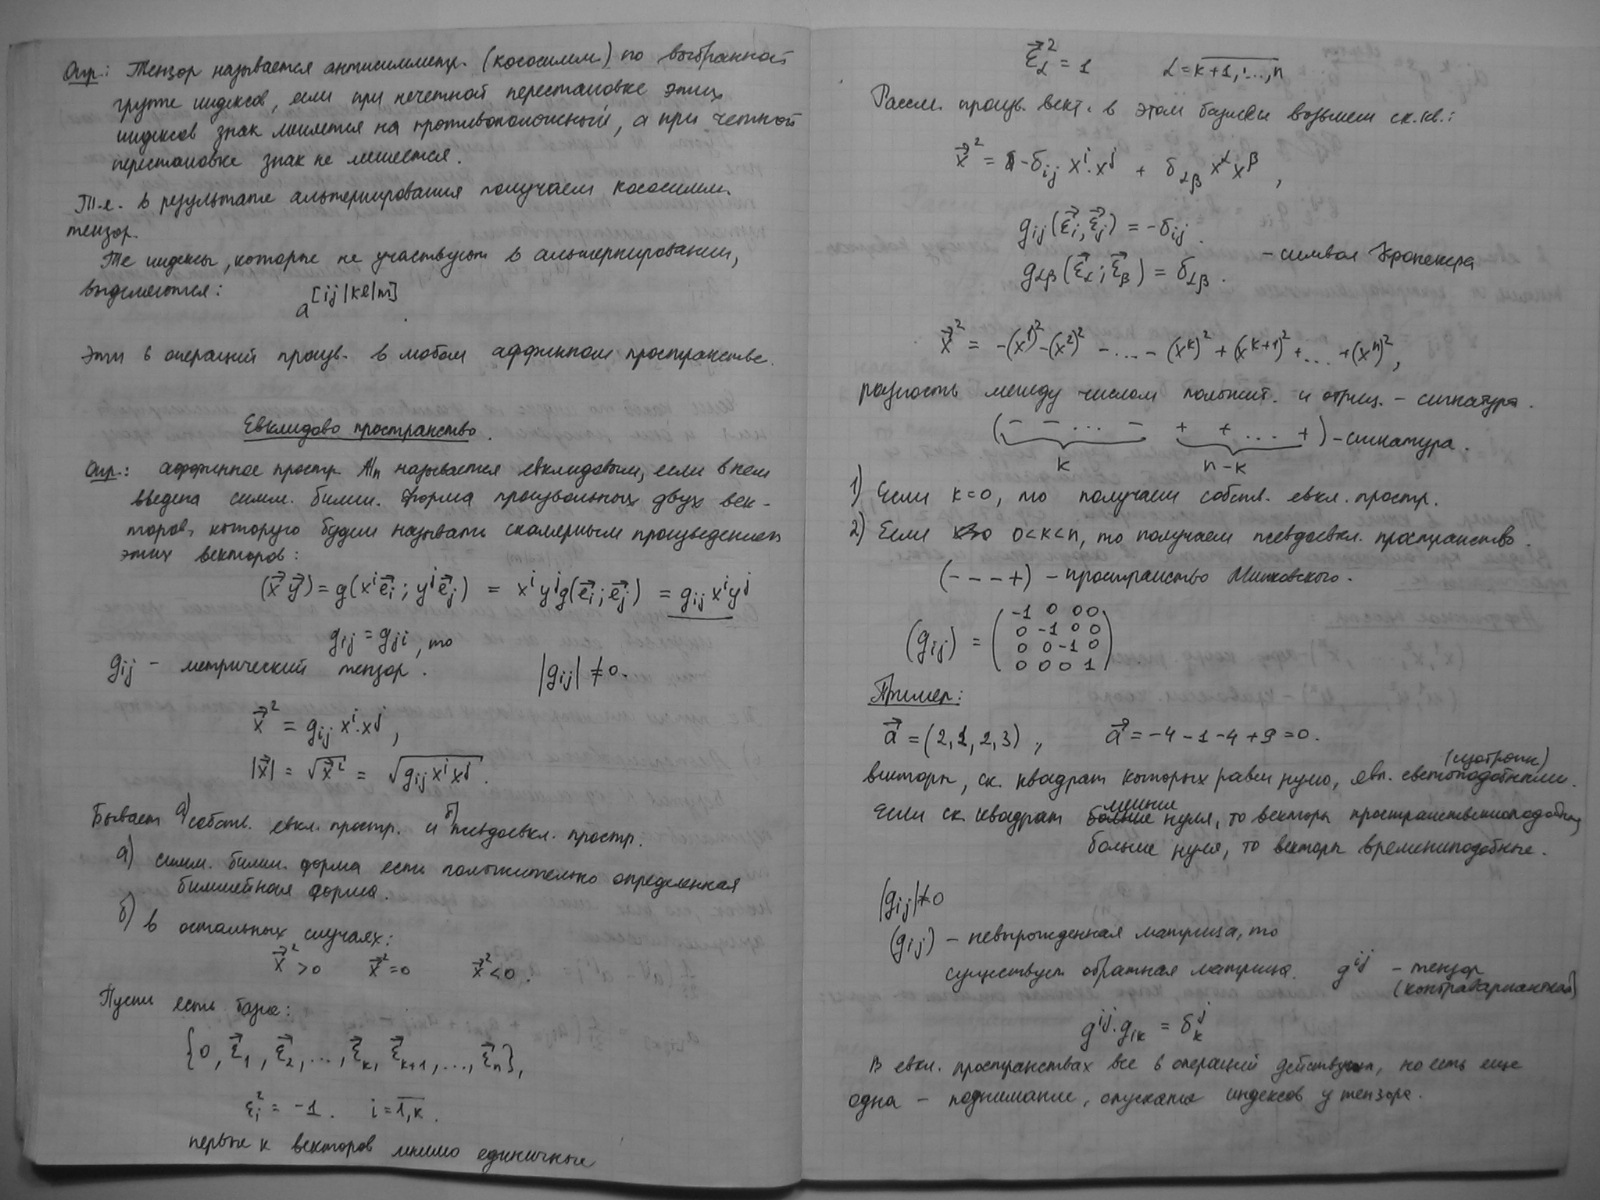 Опр.: Тензор называется антисимметр. (кососимм.) по выбранной
группе индексов, если при нечетной перестановке этих
индексов знак меняется на противоположный, а при четной
перестановке знак не меняется.
Т.е. в результате альтернирования получаем кососимм.
тензор.
Те индексы, которые не участвуют в альтернировании,
выделяются:
a^{[ij|kl|m]}.
Эти 6 операций произв. в любом аффинном пространстве.
Евклидово пространство.
Опр.: аффинное простр. Аn называется евклидовым, если в нем
введена симм. билин. форма произвольных двух век-
торов, которую будем называть скалярным произведением
этих векторов:
(x⃗ y⃗) = g(x^i e⃗_i ; y^j e⃗_j) = x^i y^j g(e⃗_i ; e⃗_j) = g_{ij} x^i y^j
g_{ij} = g_{ji}, то
g_{ij} - метрический тензор. |g_{ij}| ≠ 0.
x⃗² = g_{ij} x^i · x^j,
|x⃗| = √x⃗² = √g_{ij} x^i x^j.
Бывает а) собств. евкл. простр. и б) псевдоевкл. простр.
а) симм. билин. форма есть положительно определенная
билинейная форма.
б) в остальных случаях:
x⃗² > 0 x⃗² = 0 x⃗² < 0.
Пусть есть базис:
{0, ε⃗_1, ε⃗_2, ..., ε⃗_k, ε⃗_{k+1}, ..., ε⃗_n},
ε_i² = -1. i = 1,k.
первые к векторов мнимо единичные
ε⃗_α² = 1 α = k+1, ..., n
Рассм. произв. вект. в этом базисе возьмем ск. кв.:
x⃗² = -δ_{ij} x^i · x^j + δ_{αβ} x^α x^β,
g_{ij}(ε⃗_i, ε⃗_j) = -δ_{ij}.
- символ Кронекера
g_{αβ}(ε⃗_α; ε⃗_β) = δ_{αβ}.
x⃗² = -(x^1)² - (x^2)² - ... - (x^k)² + (x^{k+1})² + ... + (x^n)²,
разность между числом полож. и отриц. - сигнатура.
(- - ... - + + ... +) - сигнатура.
k n-k
1) Если k=0, то получаем собств. евкл. простр.
2) Если 0<k<n, то получаем псевдоевкл. пространство.
(- - - +) - пространство Минковского.
(g_{ij}) = ( -1 0 0 0
0 -1 0 0
0 0 -1 0
0 0 0 1 ).
Пример:
a⃗ = (2, 1, 2, 3), a⃗² = -4 - 1 - 4 + 9 = 0.
(изотропн)
векторы, ск. квадрат которых равен нулю, явл. светоподобными.
меньше
Если ск. квадрат больше нуля, то векторы пространственноподобны,
больше нуля, то векторы времениподобные.
|g_{ij}| ≠ 0
(g_{ij}) - невырожденная матрица, то
существует обратная матрица. g^{ij} - тензор
(контравариантный)
g^{ij} · g_{ik} = δ_k^j
В евкл. пространствах все 6 операций действуют, но есть еще
одна - поднимание, опускание индексов у тензора.